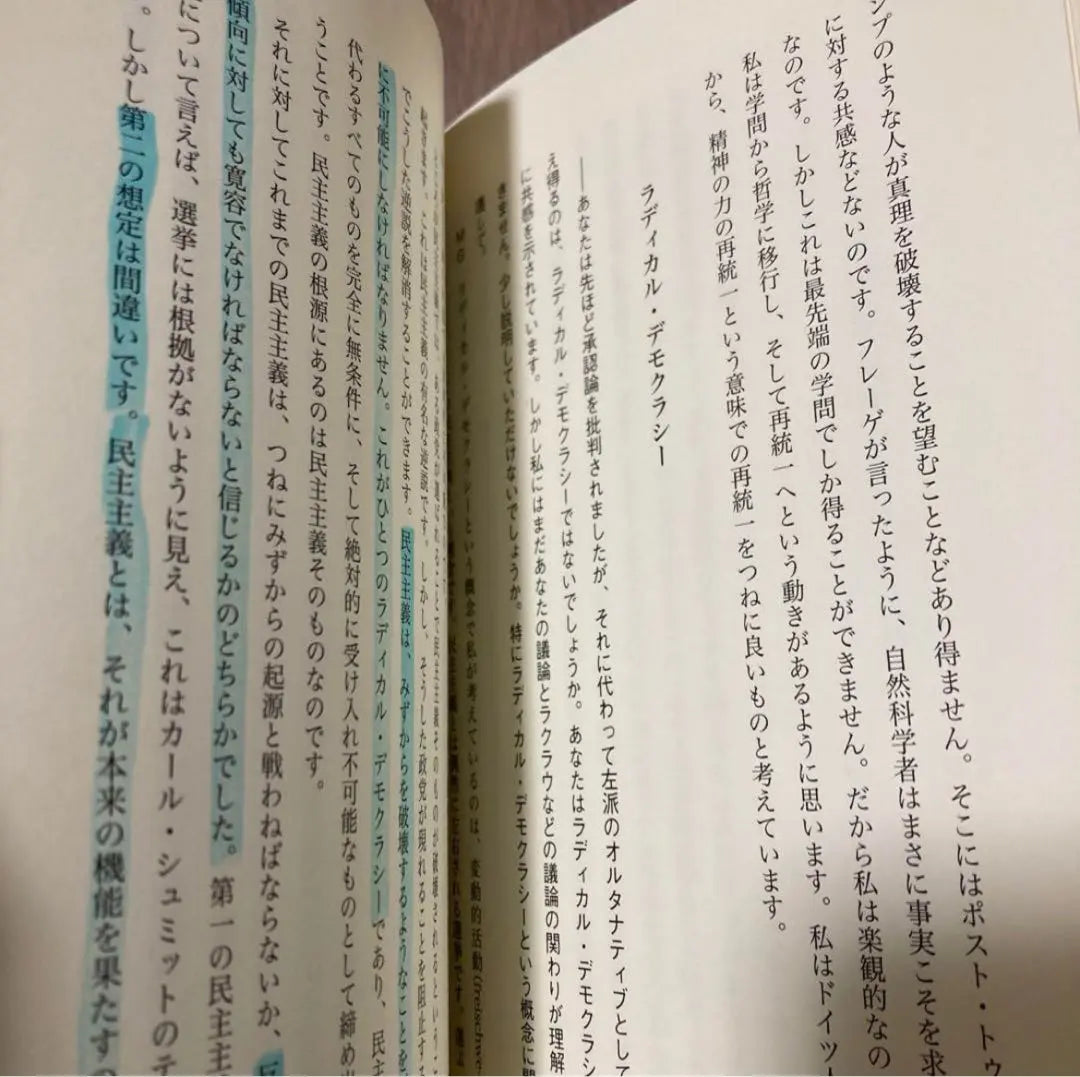 プのような人が真理を破壊することを望むことなどあり得ません。そこにはポスト・トゥ
に対する共感などないのです。フレーゲが言ったように、自然科学者はまさに事実こそを求
なのです。しかしこれは最先端の学問でしか得ることができません。だから私は楽観的なの
私は学問から哲学に移行し、そして再統一へという動きがあるように思います。私はドイツ
から、精神の力の再統一という意味での再統一をつねに良いものと考えています。
ラディカル・デモクラシー
――あなたは先ほど承認論を批判されましたが、それに代わって左派のオルタナティブとして
え得るのは、ラディカル・デモクラシーではないでしょうか。あなたはラディカル・デモクラシー
に共感を示されています。しかし私にはまだあなたの議論とラクラウなどの議論の関わりが理解
きません。少し説明していただけないでしょうか。特にラディカル・デモクラシーという概念に関
連して。
MG ラディカル・デモクラシーという概念で私が考えているのは、変動的活動
ある政党が選ばれることで民主主義そのものが破壊されるというこ
起きます。これは民主主義の有名な逆説です。しかし、そうした政党が現れることを阻止する
でこうした逆説を解消することができます。民主主義は、みずからを破壊するようなことを
に不可能にしなければなりません。これがひとつのラディカル・デモクラシーであり、民主
代わるすべてのものを完全に無条件に、そして絶対的に受け入れ不可能なものとして締め出
うことです。民主主義の根源にあるのは民主主義そのものなのです。
それに対してこれまでの民主主義は、つねにみずからの起源と戦わねばならないか、反
傾向に対しても寛容でなければならないと信じるかのどちらかでした。第一の民主主
について言えば、選挙には根拠がないように見え、これはカール・シュミットのテ
。しかし第二の想定は間違いです。民主主義とは、それが本来の機能を果たすの